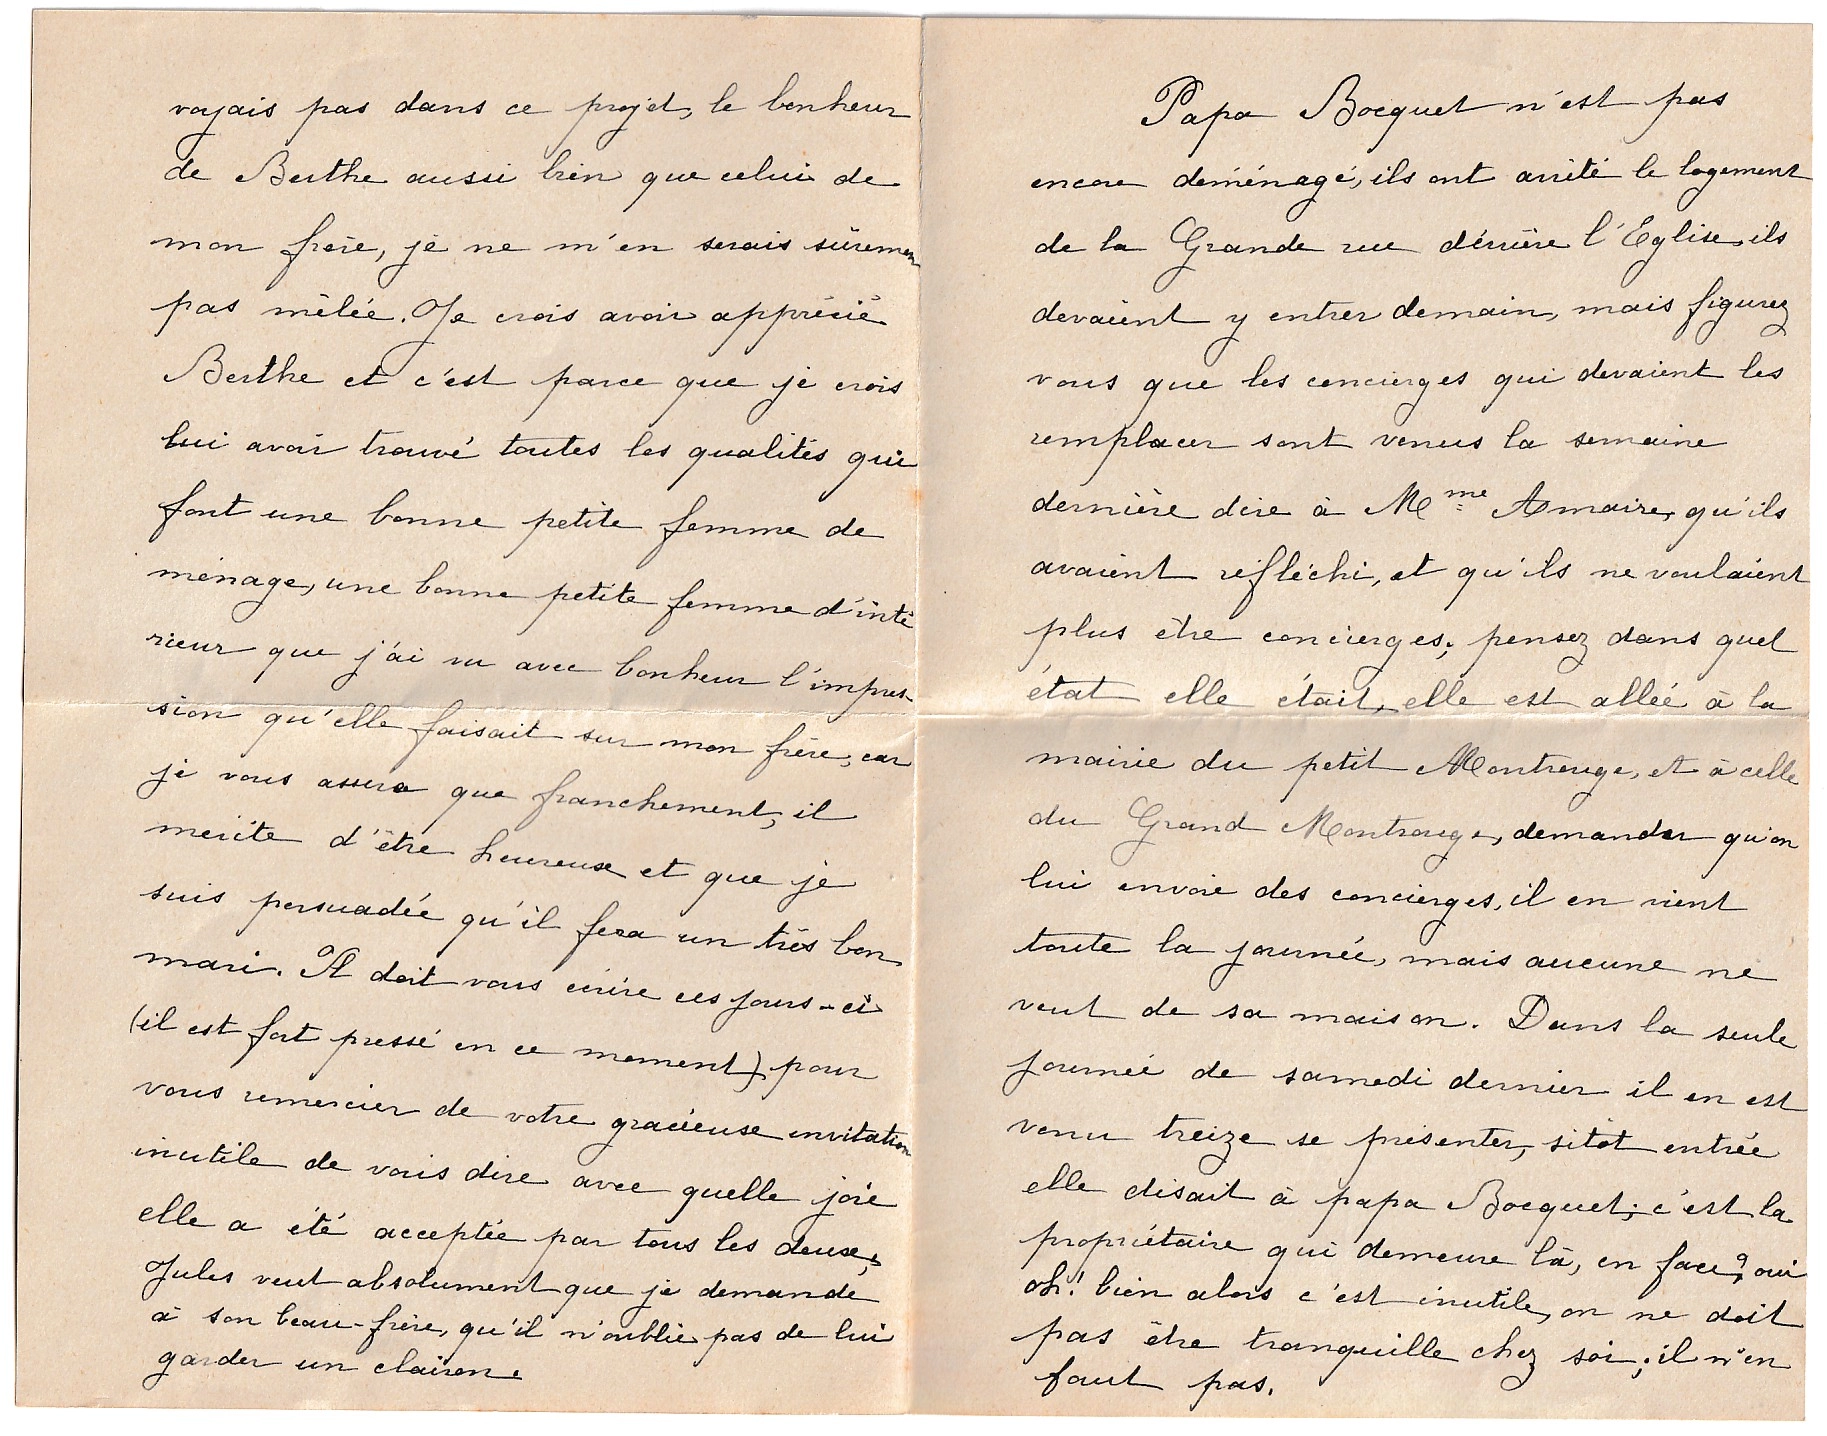 voyais pas dans ce projet, le bonheur
de Berthe aussi bien que celui de
mon frère, je ne m'en serais sûremen
pas mêlée. Je crois avoir apprécié
Berthe et c'est parce que je crois
lui avoir trouvé toutes les qualités qui
font une bonne petite femme de
ménage, une bonne petite femme d'inté
rieur que j'ai vu avec bonheur l'impres-
sion qu'elle faisait sur mon frère, car
je vous assure que franchement, il
mérite d'être heureux et que je
suis persuadée qu'il fera un très bon
mari. Il doit vous écrire ces jours-ci
(il est fort pressé en ce moment) pour
vous remercier de votre gracieuse invitation
inutile de vous dire avec quelle joie
elle a été acceptée par tous les deux;
Jules veut absolument que je demande
à son beau-frère, qu'il n'oublie pas de lui
garder un clairon.
Papa Bocquet n'est pas
encore déménagé, ils ont arrêté le logement
de la Grande rue dérrière l'Eglise, ils
devaient y entrer demain, mais figurez
vous que les concierges qui devaient les
remplacer sont venus la semaine
dernière dire à Mme Amaire, qu'ils
avaient réfléchi, et qu'ils ne voulaient
plus être concierges; pensez dans quel
état elle était, elle est allée à la
mairie du petit Montrouge, et à celle
du Grand Montrouge, demander qu'on
lui envoie des concierges, il en vient
toute la journée, mais aucune ne
veut de sa maison. Dans la seule
journée de samedi dernier il en est
venu treize se présenter, sitôt entrée
elle disait à papa Bocquet; c'est la
propriétaire qui demeure là, en face? oui
oh! bien alors c'est inutile, on ne doit
pas être tranquille chez soi; il n'en
faut pas.